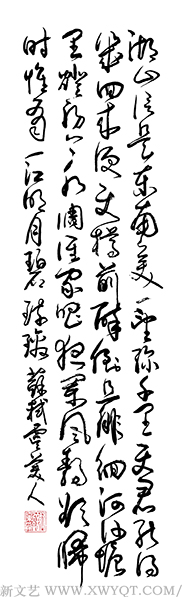 湖山信是東南美一望彌千里使君能得
幾回來便使樽前醉倒且徘徊沙河塘
里燈初上水調誰家唱夜闌風靜欲歸
時惟有一江明月碧琉璃 蘇軾虞美人
新文艺 WWW.XWYQT.COM